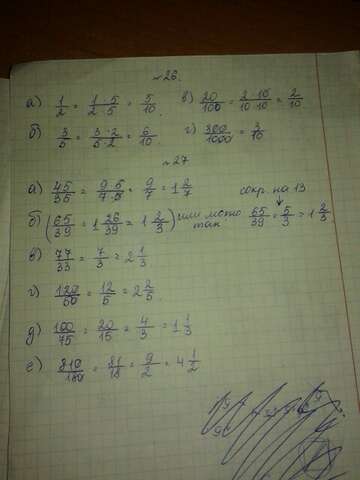 №26.
а) 1/2 = 1·5/2·5 = 5/10. в) 20/100 = 2·10/10·10 = 2/10
б) 3/5 = 3·2/5·2 = 6/10. г) 300/1000 = 3/10
№27
а) 45/35 = 9·5/7·5 = 9/7 = 1 2/7
сокр. на 13
б) (65/39 = 1 26/39 = 1 2/3) или можно так 65/39 = 5/3 = 1 2/3
в) 77/33 = 7/3 = 2 1/3
г) 120/50 = 12/5 = 2 2/5.
д) 100/75 = 20/15 = 4/3 = 1 1/3
е) 810/180 = 81/18 = 9/2 = 4 1/2